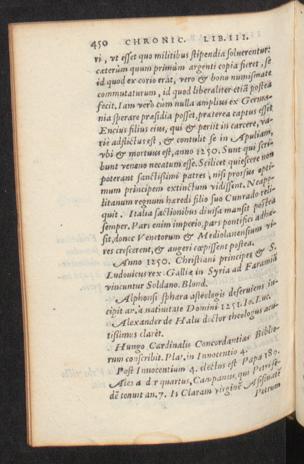 450 CHRONIC. LIB. III.
ri, vt esset quo militibus stipendia soluerentur:
cæterùm quum primùm argenti copia fieret, se
id quod ex corio erat, vero & bono numismate
commutaturum, id quod liberaliter etiã postea
fecit. Iam verò cùm nulla amplius ex Germa-
nia sperare præsidia posset, præterea captus esset
Encius filius eius, qui & periit in carcere, va-
riè adflictus est, & contulit se in Apuliam,
vbi & mortuus est, anno 1250. Sunt qui scri-
bunt veneno necatum esse. Scilicet quiescere non
poterant sanctissimi patres, nisi prorsus opti-
mum principem extinctum vidissent. Neapo-
litanum regnum hæredi filio suo Cunrado reli-
quit. Italia factionibus diuisa mansit postea
semper. Pars enim imperio, pars pontifici adhæ-
sit, donec Venetorum & Mediolanensium vi-
res crescerent, & augeri cœpissent postea.
Anno 1250. Christiani principes & S.
Ludouicus rex Galliæ in Syria ad Faramiã
vincuntur Soldano. Blond.
Alphonsi sphæra astrologis deseruiens in-
cipit an. à natiuitate Domini 1251. Io. Luc.
Alexander de Hales doctor theologus acu-
tissimus claret.
Hungo Cardinalis Concordantias Biblio-
rum conscribit. Pla, in Innocentio 4.
Post Innocentium 4. electus est Papa 189.
Alexãder quartus, Campanus, qui Petri se-
dẽ tenuit an. 7. Is Claram virginẽ Assisiatẽ
Petrum